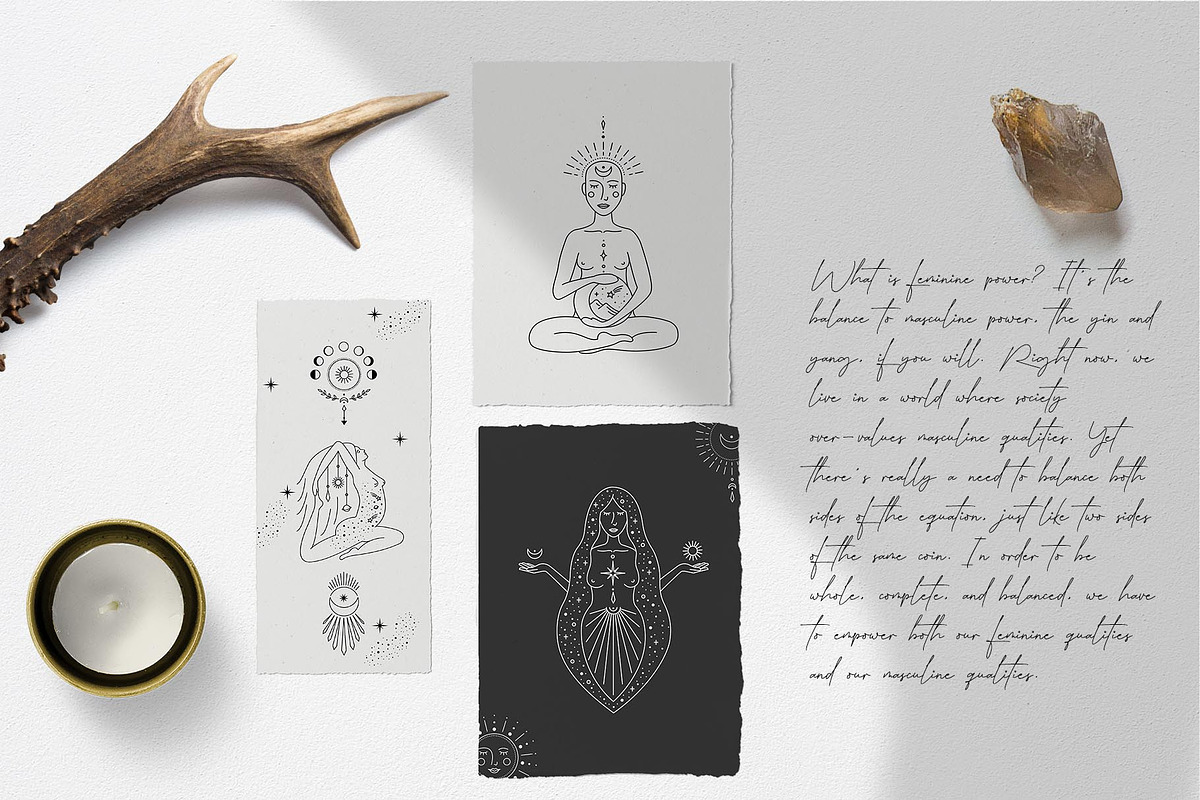 What is feminine power? It's the
balance to masculine power, the yin and
yang, if you will. Right now, we
live in a world where society
over-values masculine qualities. Yet
there's really a need to balance both
sides of the equation, just like two sides
of the same coin. In order to be
whole, complete, and balanced, we have
to empower both our feminine qualities
and our masculine qualities.